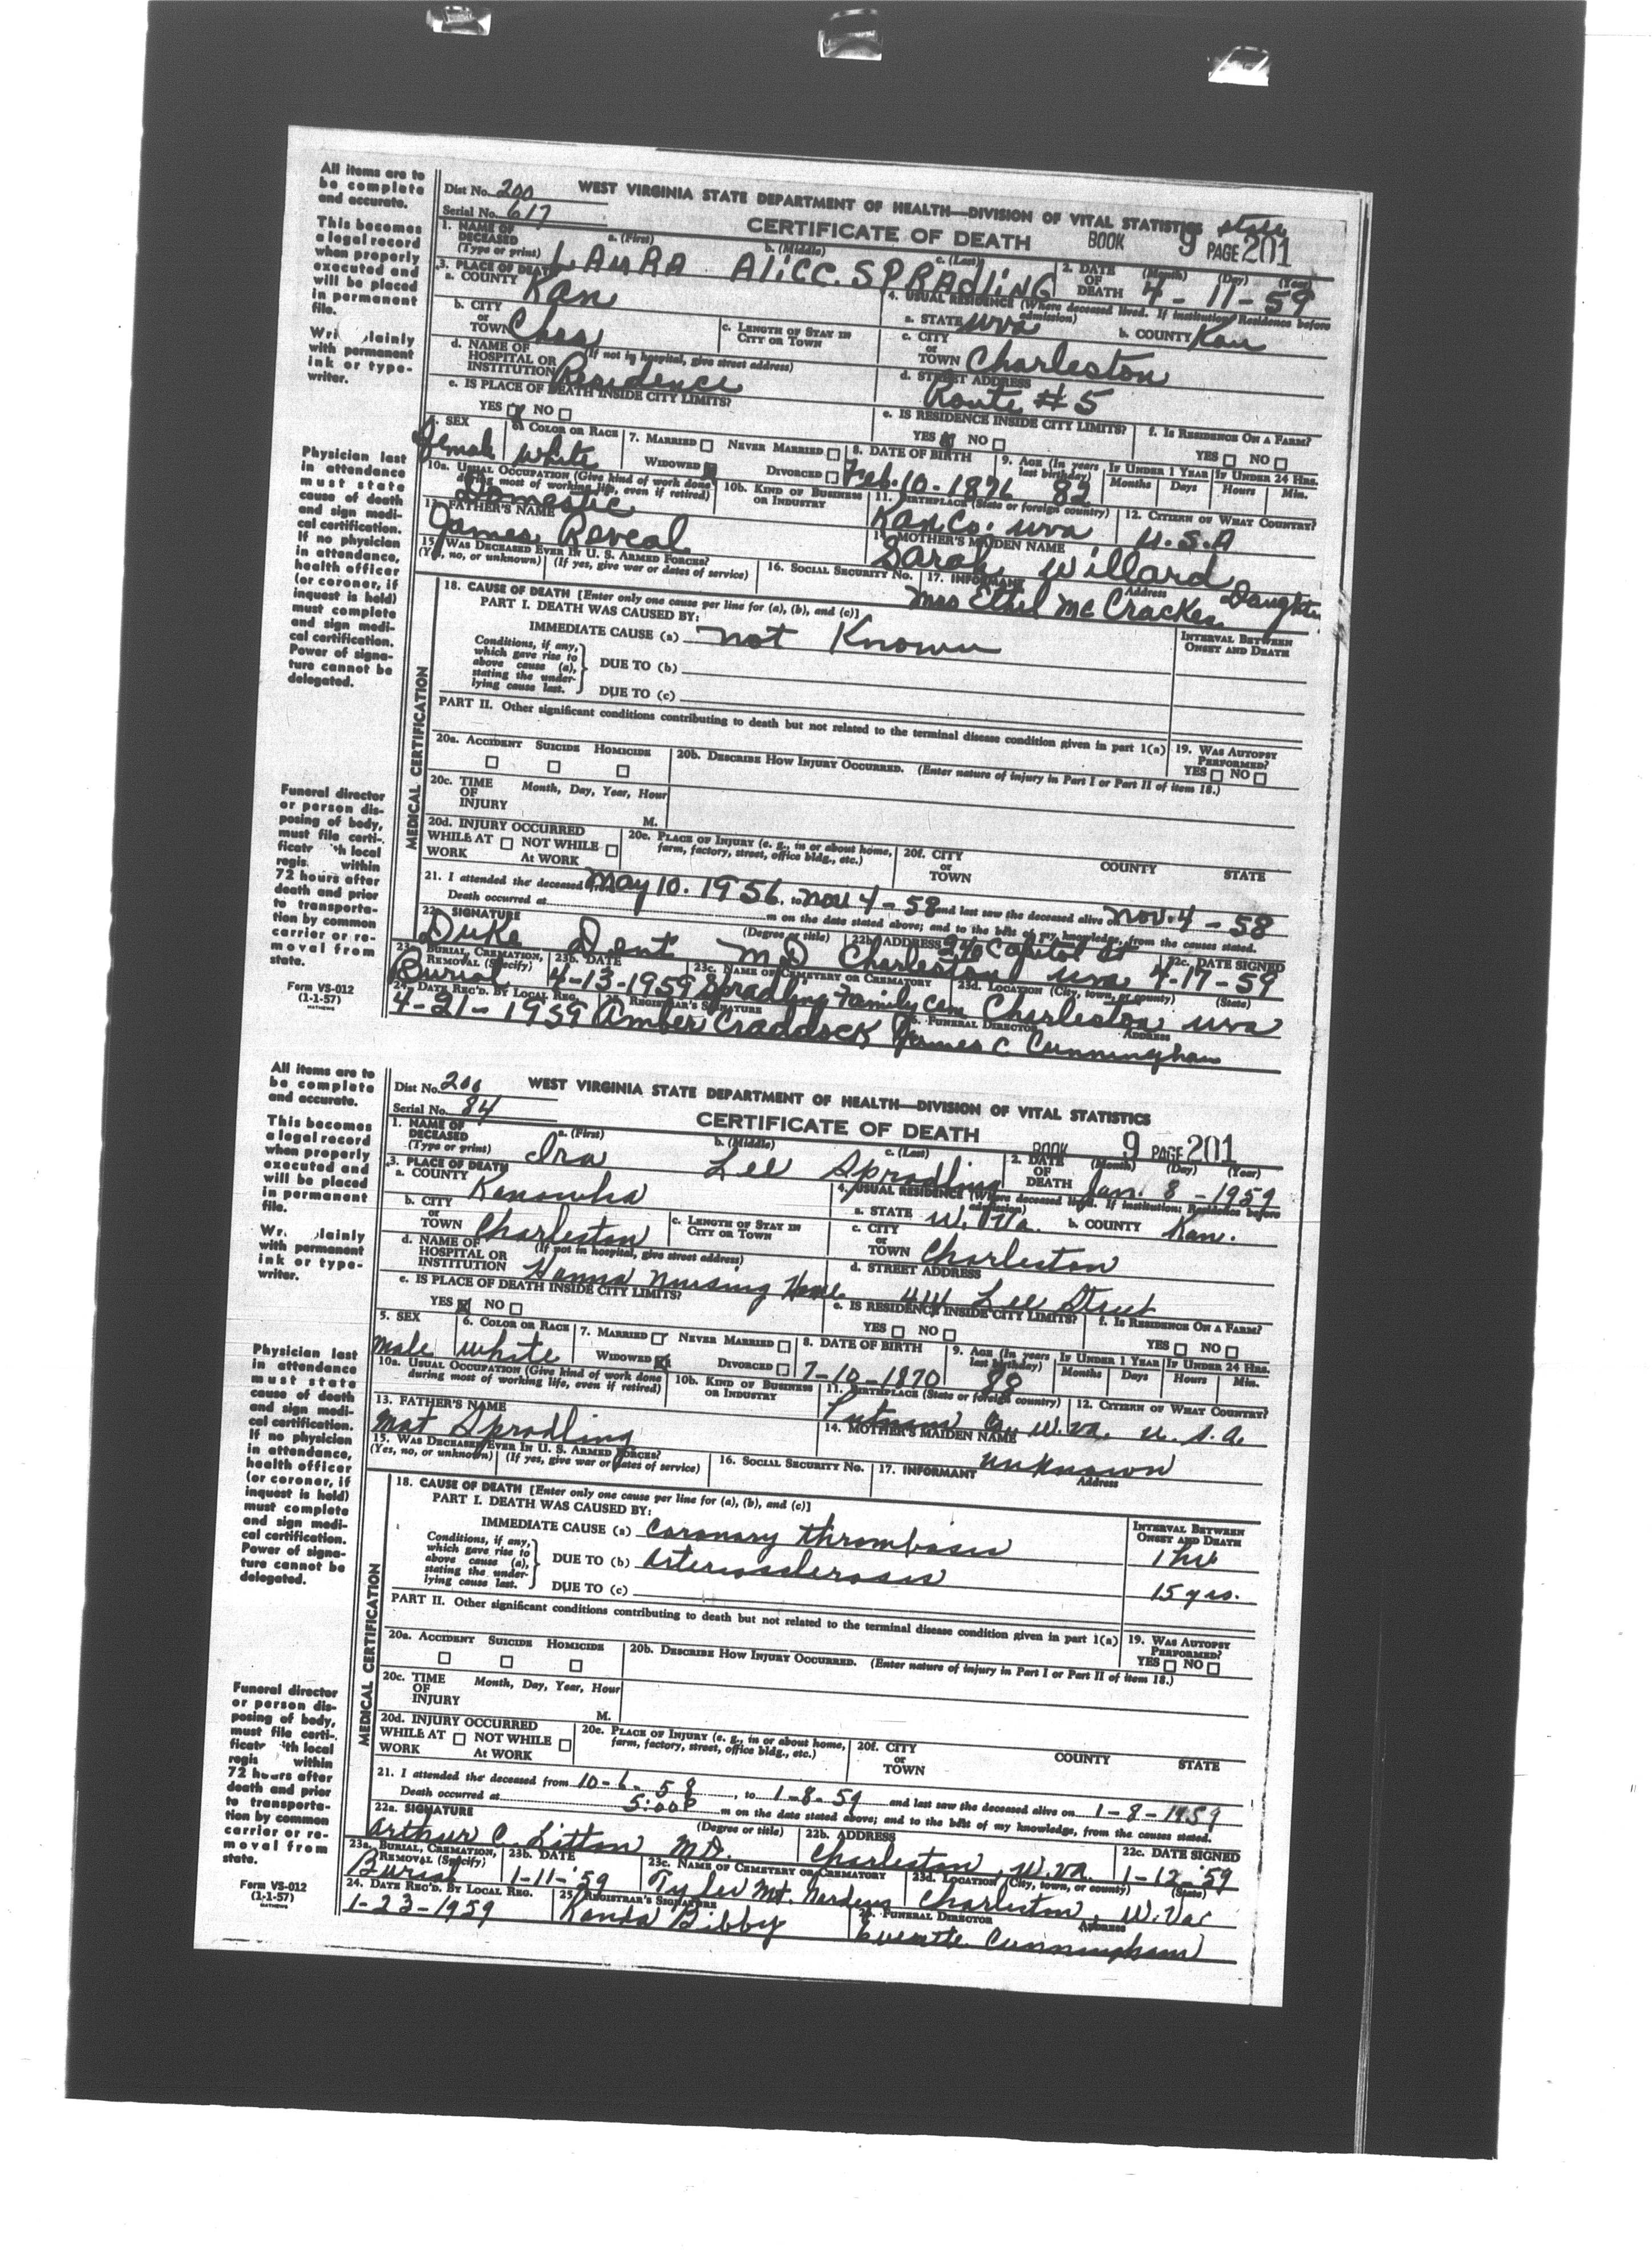 All items are to
be complete
and accurate.
This becomes
a legal record
when properly
executed and
will be placed
in permanent
file.
Wri lainly
with permanent
ink or type-
writer.
Physician last
in attendance
must state
cause of death
and sign medi-
cal certification.
If no physician
in attendance,
health officer
(or coroner, if
inquest is held)
must complete
and sign medi-
cal certification.
Power of signa-
ture cannot be
delegated.
Funeral director
or person dis-
posing of body,
must file certi-
ficate th local
regis within
72 hours after
death and prior
to transporta-
tion by common
carrier or re-
moval from
state.
Form VS-012
(1-1-57)
MATHEWS
Dist No. 200 WEST VIRGINIA STATE DEPARTMENT OF HEALTH—DIVISION OF VITAL STATISTICS state
Serial No. 617 CERTIFICATE OF DEATH BOOK 9 PAGE 201
1. NAME OF DECEASED (Type or print) a. (First) b. (Middle) c. (Last) LAURA ALICC. SPRADLING 2. DATE OF DEATH (Month) (Day) (Year) 4-11-59
3. PLACE OF DEATH a. COUNTY Kan 4. USUAL RESIDENCE (Where deceased lived. If institution: Residence before admission) a. STATE wva b. COUNTY Kan
b. CITY or TOWN Chas c. LENGTH OF STAY IN CITY OR TOWN c. CITY or TOWN Charleston
d. NAME OF HOSPITAL OR INSTITUTION (If not in hospital, give street address) Residence d. STREET ADDRESS Route #5
e. IS PLACE OF DEATH INSIDE CITY LIMITS? YES NO e. IS RESIDENCE INSIDE CITY LIMITS? YES NO f. IS RESIDENCE ON A FARM? YES NO
5. SEX female 6. COLOR OR RACE white 7. MARRIED NEVER MARRIED WIDOWED DIVORCED 8. DATE OF BIRTH Feb. 10-1876 9. AGE (In years last birthday) 82 IF UNDER 1 YEAR Months Days IF UNDER 24 HRS. Hours Min.
10a. USUAL OCCUPATION (Give kind of work done during most of working life, even if retired) Domestic 10b. KIND OF BUSINESS OR INDUSTRY 11. BIRTHPLACE (State or foreign country) Kan Co. wva 12. CITIZEN OF WHAT COUNTRY? U.S.A
13. FATHER'S NAME James Reveal 14. MOTHER'S MAIDEN NAME Sarah Willard
15. WAS DECEASED EVER IN U. S. ARMED FORCES? (Yes, no, or unknown) (If yes, give war or dates of service) 16. SOCIAL SECURITY NO. 17. INFORMANT Address Mrs Ethel McCracken Daughter
18. CAUSE OF DEATH [Enter only one cause per line for (a), (b), and (c)]
PART I. DEATH WAS CAUSED BY:
IMMEDIATE CAUSE (a) not Known INTERVAL BETWEEN ONSET AND DEATH
Conditions, if any, which gave rise to above cause (a), stating the under- lying cause last. DUE TO (b)
DUE TO (c)
PART II. Other significant conditions contributing to death but not related to the terminal disease condition given in part 1(a) 19. WAS AUTOPSY PERFORMED? YES NO
MEDICAL CERTIFICATION
20a. ACCIDENT SUICIDE HOMICIDE 20b. DESCRIBE HOW INJURY OCCURRED. (Enter nature of injury in Part I or Part II of item 18.)
20c. TIME OF INJURY Month, Day, Year, Hour M.
20d. INJURY OCCURRED WHILE AT WORK NOT WHILE AT WORK 20e. PLACE OF INJURY (e. g., in or about home, farm, factory, street, office bldg., etc.) 20f. CITY or TOWN COUNTY STATE
21. I attended the deceased from May 10. 1956. to nov 4-58 and last saw the deceased alive on nov. 4-58
Death occurred at m on the date stated above; and to the best of my knowledge, from the causes stated.
22a. SIGNATURE Duke Dent MD (Degree or title) 22b. ADDRESS Capitol St Charleston wva 22c. DATE SIGNED 4-17-59
23a. BURIAL, CREMATION, REMOVAL (Specify) Burial 23b. DATE 4-13-1959 23c. NAME OF CEMETERY OR CREMATORY Spradling Family Cem 23d. LOCATION (City, town, or county) (State) Charleston wva
24. DATE REC'D. BY LOCAL REG. 4-21-1959 25. REGISTRAR'S SIGNATURE Amber Craddock 26. FUNERAL DIRECTOR ADDRESS James C Cunningham
All items are to
be complete
and accurate.
This becomes
a legal record
when properly
executed and
will be placed
in permanent
file.
Wr. lainly
with permanent
ink or type-
writer.
Physician last
in attendance
must state
cause of death
and sign medi-
cal certification.
If no physician
in attendance,
health officer
(or coroner, if
inquest is held)
must complete
and sign medi-
cal certification.
Power of signa-
ture cannot be
delegated.
Funeral director
or person dis-
posing of body,
must file certi-
ficate ith local
regis within
72 hours after
death and prior
to transporta-
tion by common
carrier or re-
moval from
state.
Form VS-012
(1-1-57)
MATHEWS
Dist No. 200 WEST VIRGINIA STATE DEPARTMENT OF HEALTH—DIVISION OF VITAL STATISTICS
Serial No. 84 CERTIFICATE OF DEATH BOOK 9 PAGE 201
1. NAME OF DECEASED (Type or print) a. (First) b. (Middle) c. (Last) Ira Lee Spradling 2. DATE OF DEATH (Month) (Day) (Year) Jan. 8-1959
3. PLACE OF DEATH a. COUNTY Kanawha 4. USUAL RESIDENCE (Where deceased lived. If institution: Residence before admission) a. STATE W. Va. b. COUNTY Kan.
b. CITY or TOWN Charleston c. LENGTH OF STAY IN CITY OR TOWN c. CITY or TOWN Charleston
d. NAME OF HOSPITAL OR INSTITUTION (If not in hospital, give street address) Hanna Nursing Home d. STREET ADDRESS 414 Lee Street
e. IS PLACE OF DEATH INSIDE CITY LIMITS? YES NO e. IS RESIDENCE INSIDE CITY LIMITS? YES NO f. IS RESIDENCE ON A FARM? YES NO
5. SEX Male 6. COLOR OR RACE white 7. MARRIED NEVER MARRIED WIDOWED DIVORCED 8. DATE OF BIRTH 7-10-1870 9. AGE (In years last birthday) 88 IF UNDER 1 YEAR Months Days IF UNDER 24 HRS. Hours Min.
10a. USUAL OCCUPATION (Give kind of work done during most of working life, even if retired) 10b. KIND OF BUSINESS OR INDUSTRY 11. BIRTHPLACE (State or foreign country) Putnam Co. W. Va. 12. CITIZEN OF WHAT COUNTRY? U. S. A.
13. FATHER'S NAME Mat Spradling 14. MOTHER'S MAIDEN NAME unknown
15. WAS DECEASED EVER IN U. S. ARMED FORCES? (Yes, no, or unknown) (If yes, give war or dates of service) 16. SOCIAL SECURITY NO. 17. INFORMANT Address
18. CAUSE OF DEATH [Enter only one cause per line for (a), (b), and (c)]
PART I. DEATH WAS CAUSED BY:
IMMEDIATE CAUSE (a) Coronary thrombosis INTERVAL BETWEEN ONSET AND DEATH 1 hr
Conditions, if any, which gave rise to above cause (a), stating the under- lying cause last. DUE TO (b) Arteriosclerosis 15 yrs.
DUE TO (c)
PART II. Other significant conditions contributing to death but not related to the terminal disease condition given in part 1(a) 19. WAS AUTOPSY PERFORMED? YES NO
MEDICAL CERTIFICATION
20a. ACCIDENT SUICIDE HOMICIDE 20b. DESCRIBE HOW INJURY OCCURRED. (Enter nature of injury in Part I or Part II of item 18.)
20c. TIME OF INJURY Month, Day, Year, Hour M.
20d. INJURY OCCURRED WHILE AT WORK NOT WHILE AT WORK 20e. PLACE OF INJURY (e. g., in or about home, farm, factory, street, office bldg., etc.) 20f. CITY or TOWN COUNTY STATE
21. I attended the deceased from 10-6-58, to 1-8-59 and last saw the deceased alive on 1-8-1959
Death occurred at 5:00P m on the date stated above; and to the best of my knowledge, from the causes stated.
22a. SIGNATURE Arthur C. Litton MD. (Degree or title) 22b. ADDRESS Charleston, W. Va. 22c. DATE SIGNED 1-12-'59
23a. BURIAL, CREMATION, REMOVAL (Specify) Burial 23b. DATE 1-11-'59 23c. NAME OF CEMETERY OR CREMATORY Tyler Mt. Gardens 23d. LOCATION (City, town, or county) (State) Charleston, W. Va
24. DATE REC'D. BY LOCAL REG. 1-23-1959 25. REGISTRAR'S SIGNATURE Kanda Bibby 26. FUNERAL DIRECTOR ADDRESS Cunningham